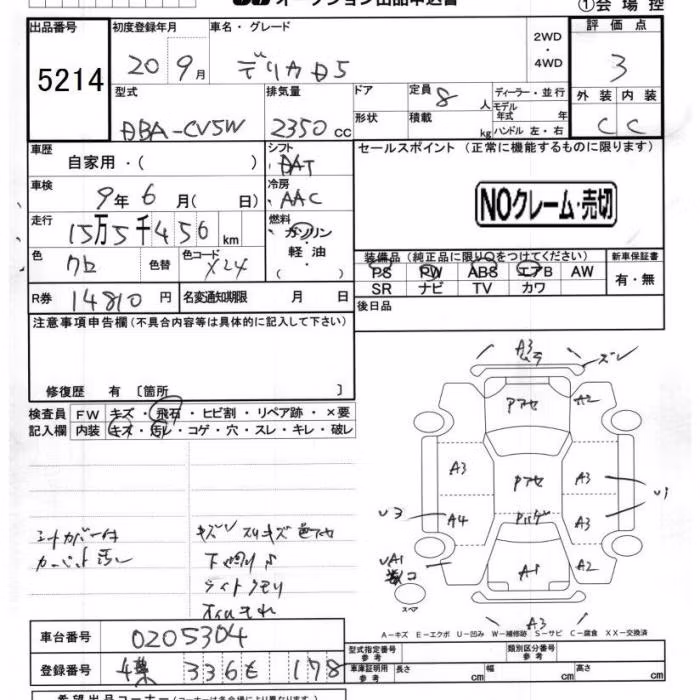 オークション出品申込書
①会場控
出品番号 初度登録年月 車名・グレード 2WD・4WD 評価点
5214 20 9月 デリカD5 3
型式 排気量 ドア 定員 8人 ディーラー・並行 外装 内装
DBA-CV5W 2350cc 形状 積載 kg モデル年式 年 ハンドル 左・右 C C
車歴 自家用・( ) シフト DAT セールスポイント (正常に機能するものに限ります)
車検 9年6月( 日) 冷房 AAC
NOクレーム・売切
走行 15万5千456km 燃料 ガソリン・軽油・( )
色 クロ 色替 色コード X24
装備品 (純正品に限り○をつけてください) 新車保証書
PS PW ABS エアB AW 有・無
SR ナビ TV カワ
R券 14810円 名変通知期限 月 日 後日品
注意事項申告欄(不具合内容等は具体的に記入して下さい)
修復歴 有〔箇所 〕
検査員 FW キズ・飛石・ヒビ割・リペア跡・×要
記入欄 内装 キズ・汚レ・コゲ・穴・スレ・キレ・破レ
A3 ズレ
Pアセ A2
A3 Pアセ A3
U3 A4 A3 U1
UA1 A1 A2
スペア
A3
シートカバー
カーペット汚レ
キズU スリキズ 色アセ
下廻りサ
ライトクモリ
A-キズ E-エクボ U-凹み W-補修跡 S-サビ C-腐食 XX-交換済
車台番号 0205304
登録番号 336 178
型式指定番号 参考 類別区分番号 参考
車庫証明用 参考 長さ cm 幅 cm 高さ cm
希望出品コーナー